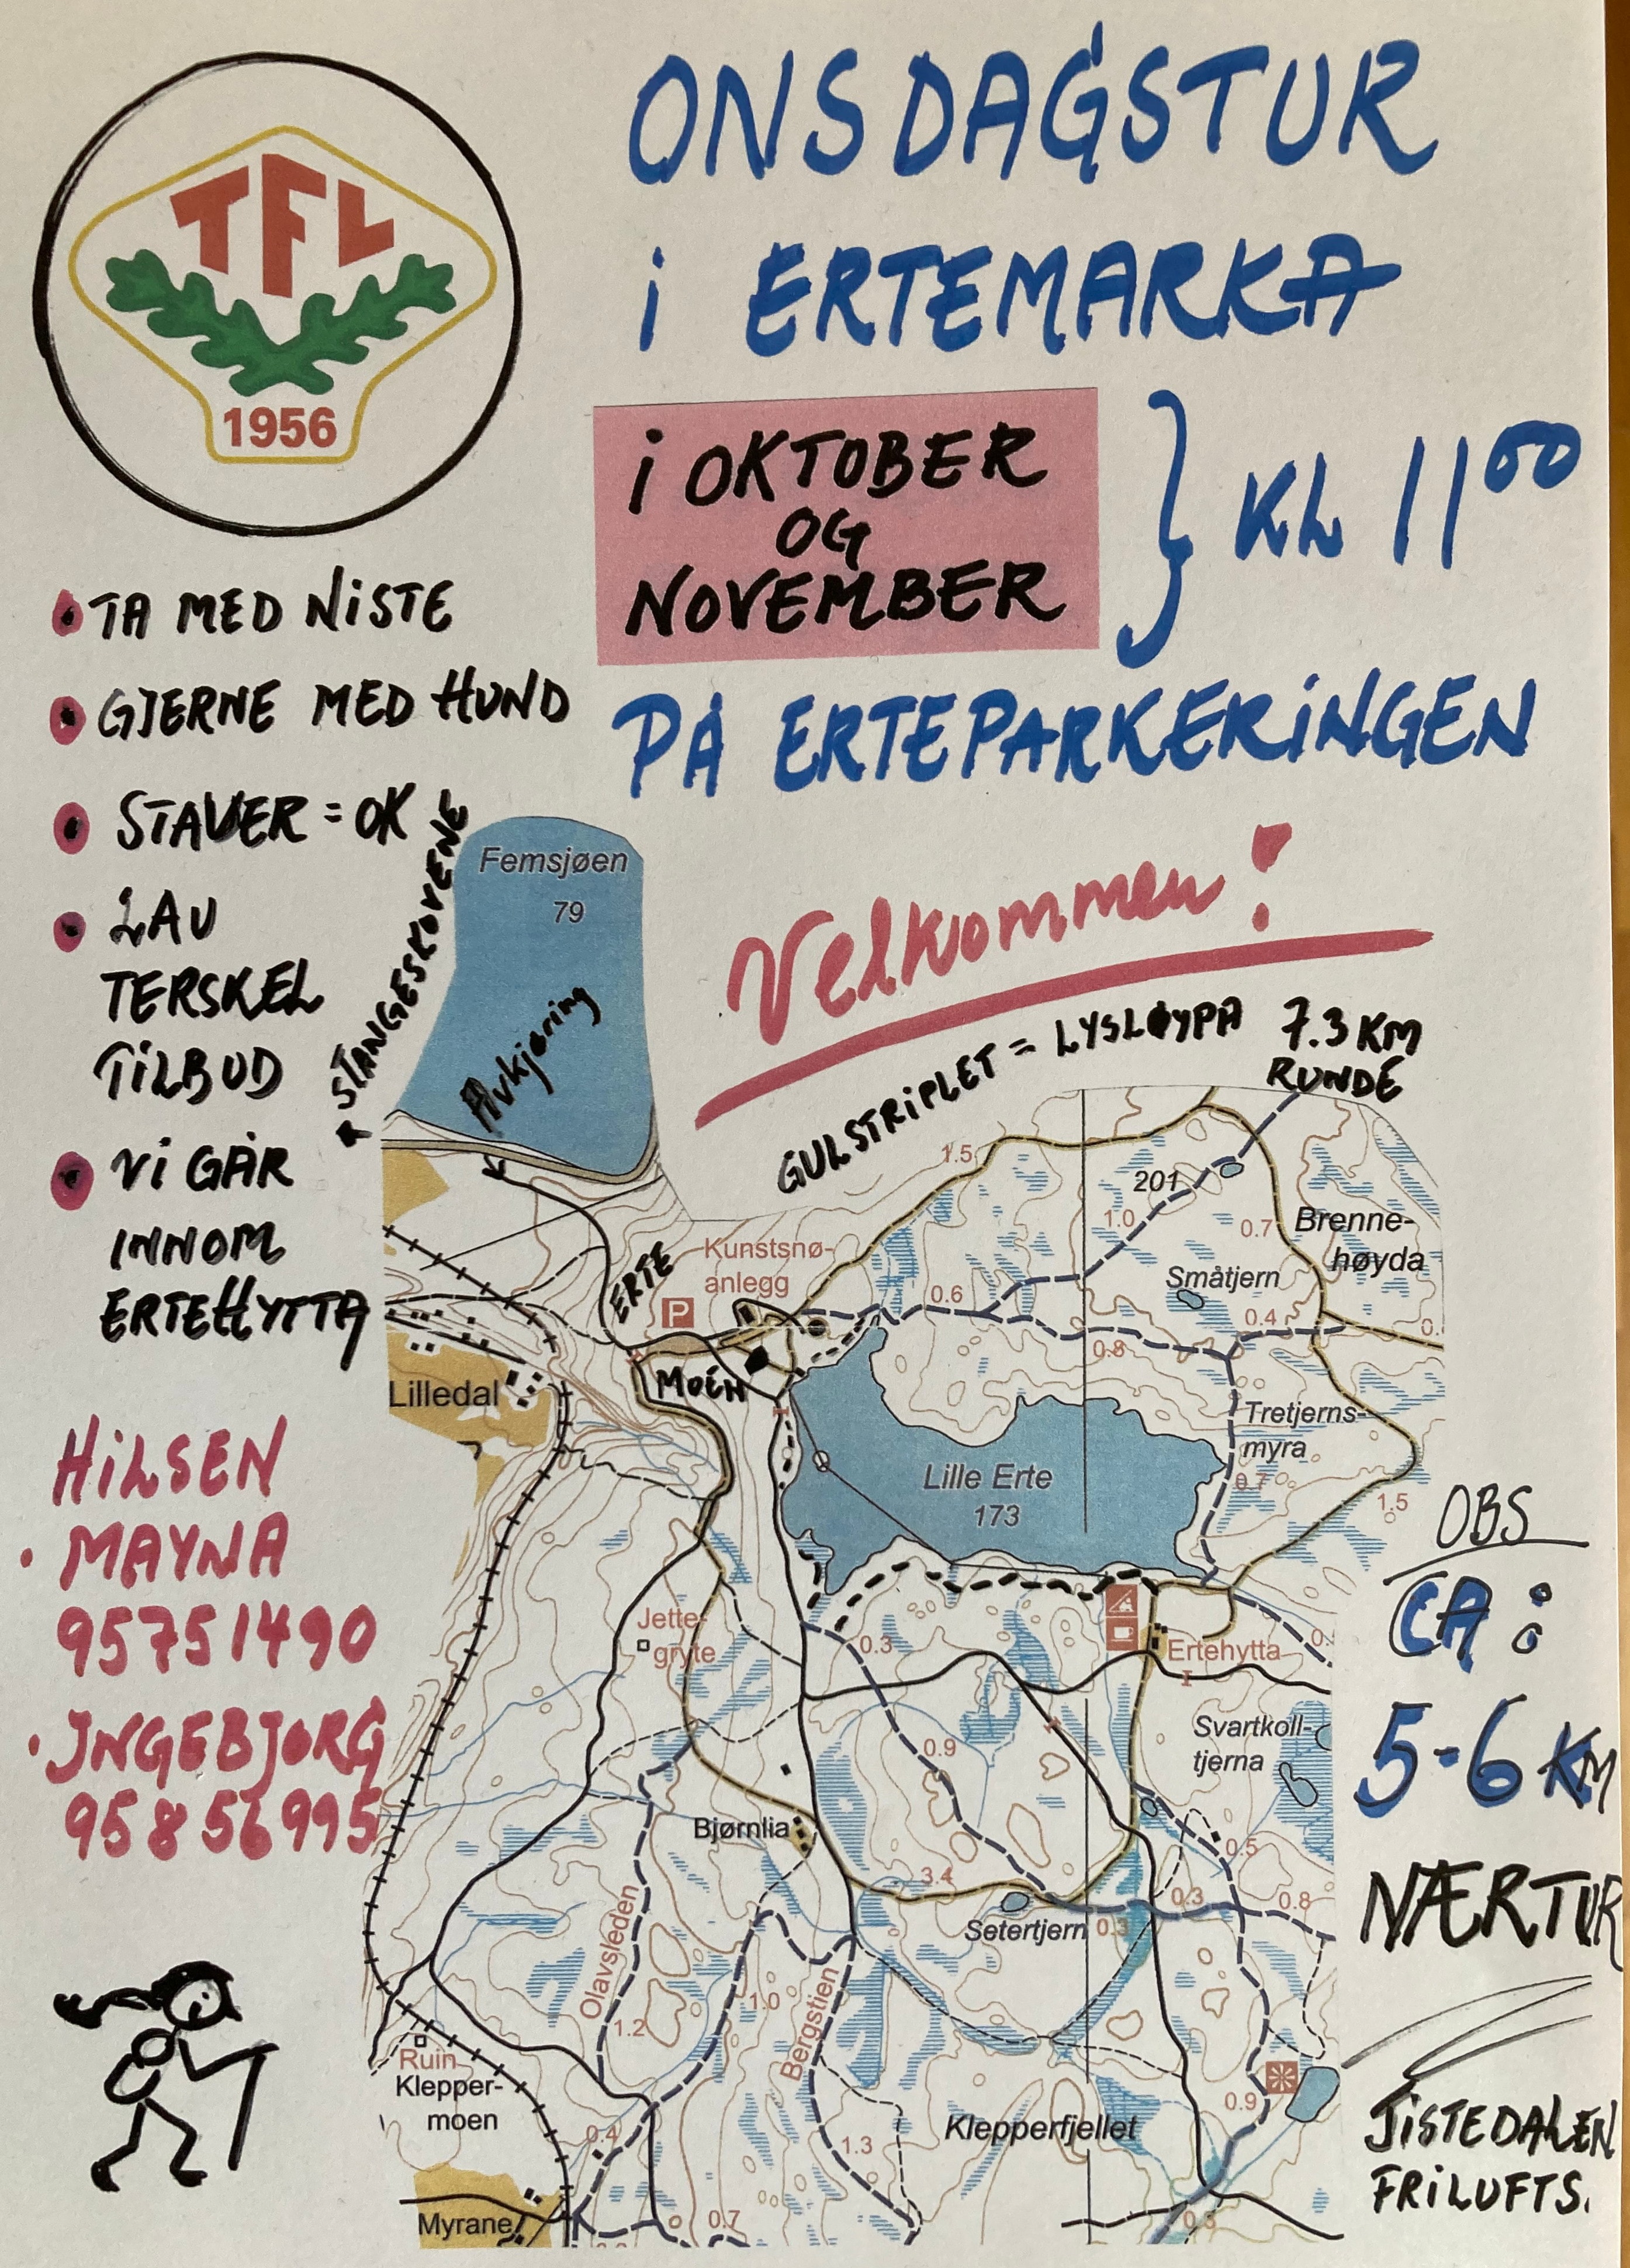 TFL
1956
ONSDAGSTUR
i ERTEMARKA
i OKTOBER
OG
NOVEMBER
} KL 11⁰⁰
PÅ ERTEPARKERINGEN
• TA MED NISTE
• GJERNE MED HUND
• STAVER = OK
• LAV
TERSKEL
TILBUD
• Vi GÅR
INNOM
ERTEHYTTA
Velkommen!
GULSTRIPLET = LYSLØYPA 7.3 KM
RUNDE
STANGESKOVENE
Femsjøen
79
Avkjøring
1.5
201
1.0
0.7
Brenne-
høyda
ERTE
Kunstsnø-
anlegg
P
0.6
Småtjern
0.4
0.8
MOEN
Lilledal
Tretjerns-
myra
0.7
1.5
Lille Erte
173
Jette-
gryte
0.3
Ertehytta
Svartkoll-
tjerna
0.9
Bjørnlia
0.5
3.4
0.3
0.8
Setertjern
0.3
Olavsleden
1.2
1.0
Bergstien
Ruin
Klepper-
moen
0.9
0.4
1.3
Klepperfjellet
Myrane
0.7
0.3
HILSEN
• MAYNA
95751490
• INGEBJØRG
95856995
OBS
CA:
5-6 KM
NÆRTUR
TISTEDALEN
FRILUFTS.